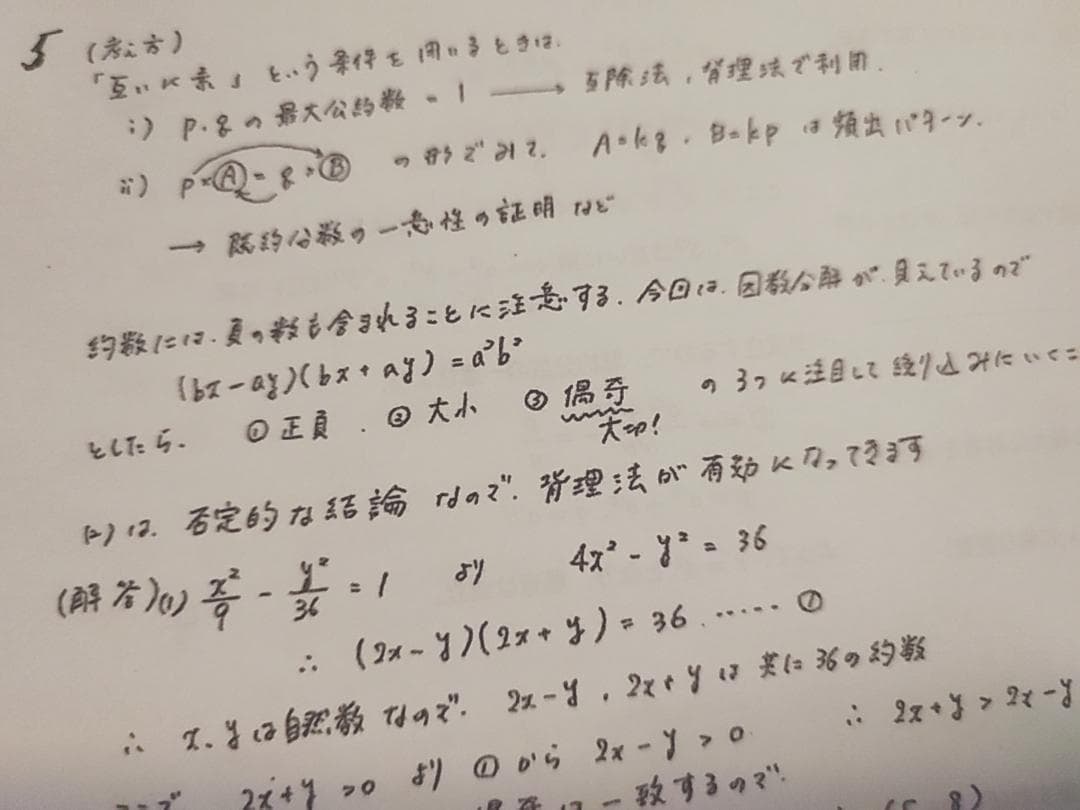 5 (考え方)
「互いに素」という条件を用いるときは.
i) p.qの最大公約数=1 → 互除法,背理法で利用.
ii) p×A=q×B の形でみて. A=kq, B=kp は頻出パターン.
→ 既約分数の一意性の証明など
約数には.負の数も含まれることに注意する.今回は.因数分解が.見えているので
(bx-ay)(bx+ay)=a²b²
としたら. ①正負. ②大小 ③偶奇 の3つに注目して絞り込みにいくこ
大切!
(2)は.否定的な結論なので.背理法が有効になってきます
(解答)(1) x²/9 - y²/36 = 1 より 4x²-y²=36
∴ (2x-y)(2x+y)=36 ...... ①
∴ x.yは自然数なので. 2x-y, 2x+yは共に36の約数
2x+y>0 より ①から 2x-y>0 ∴ 2x+y>2x-y
一致するので.